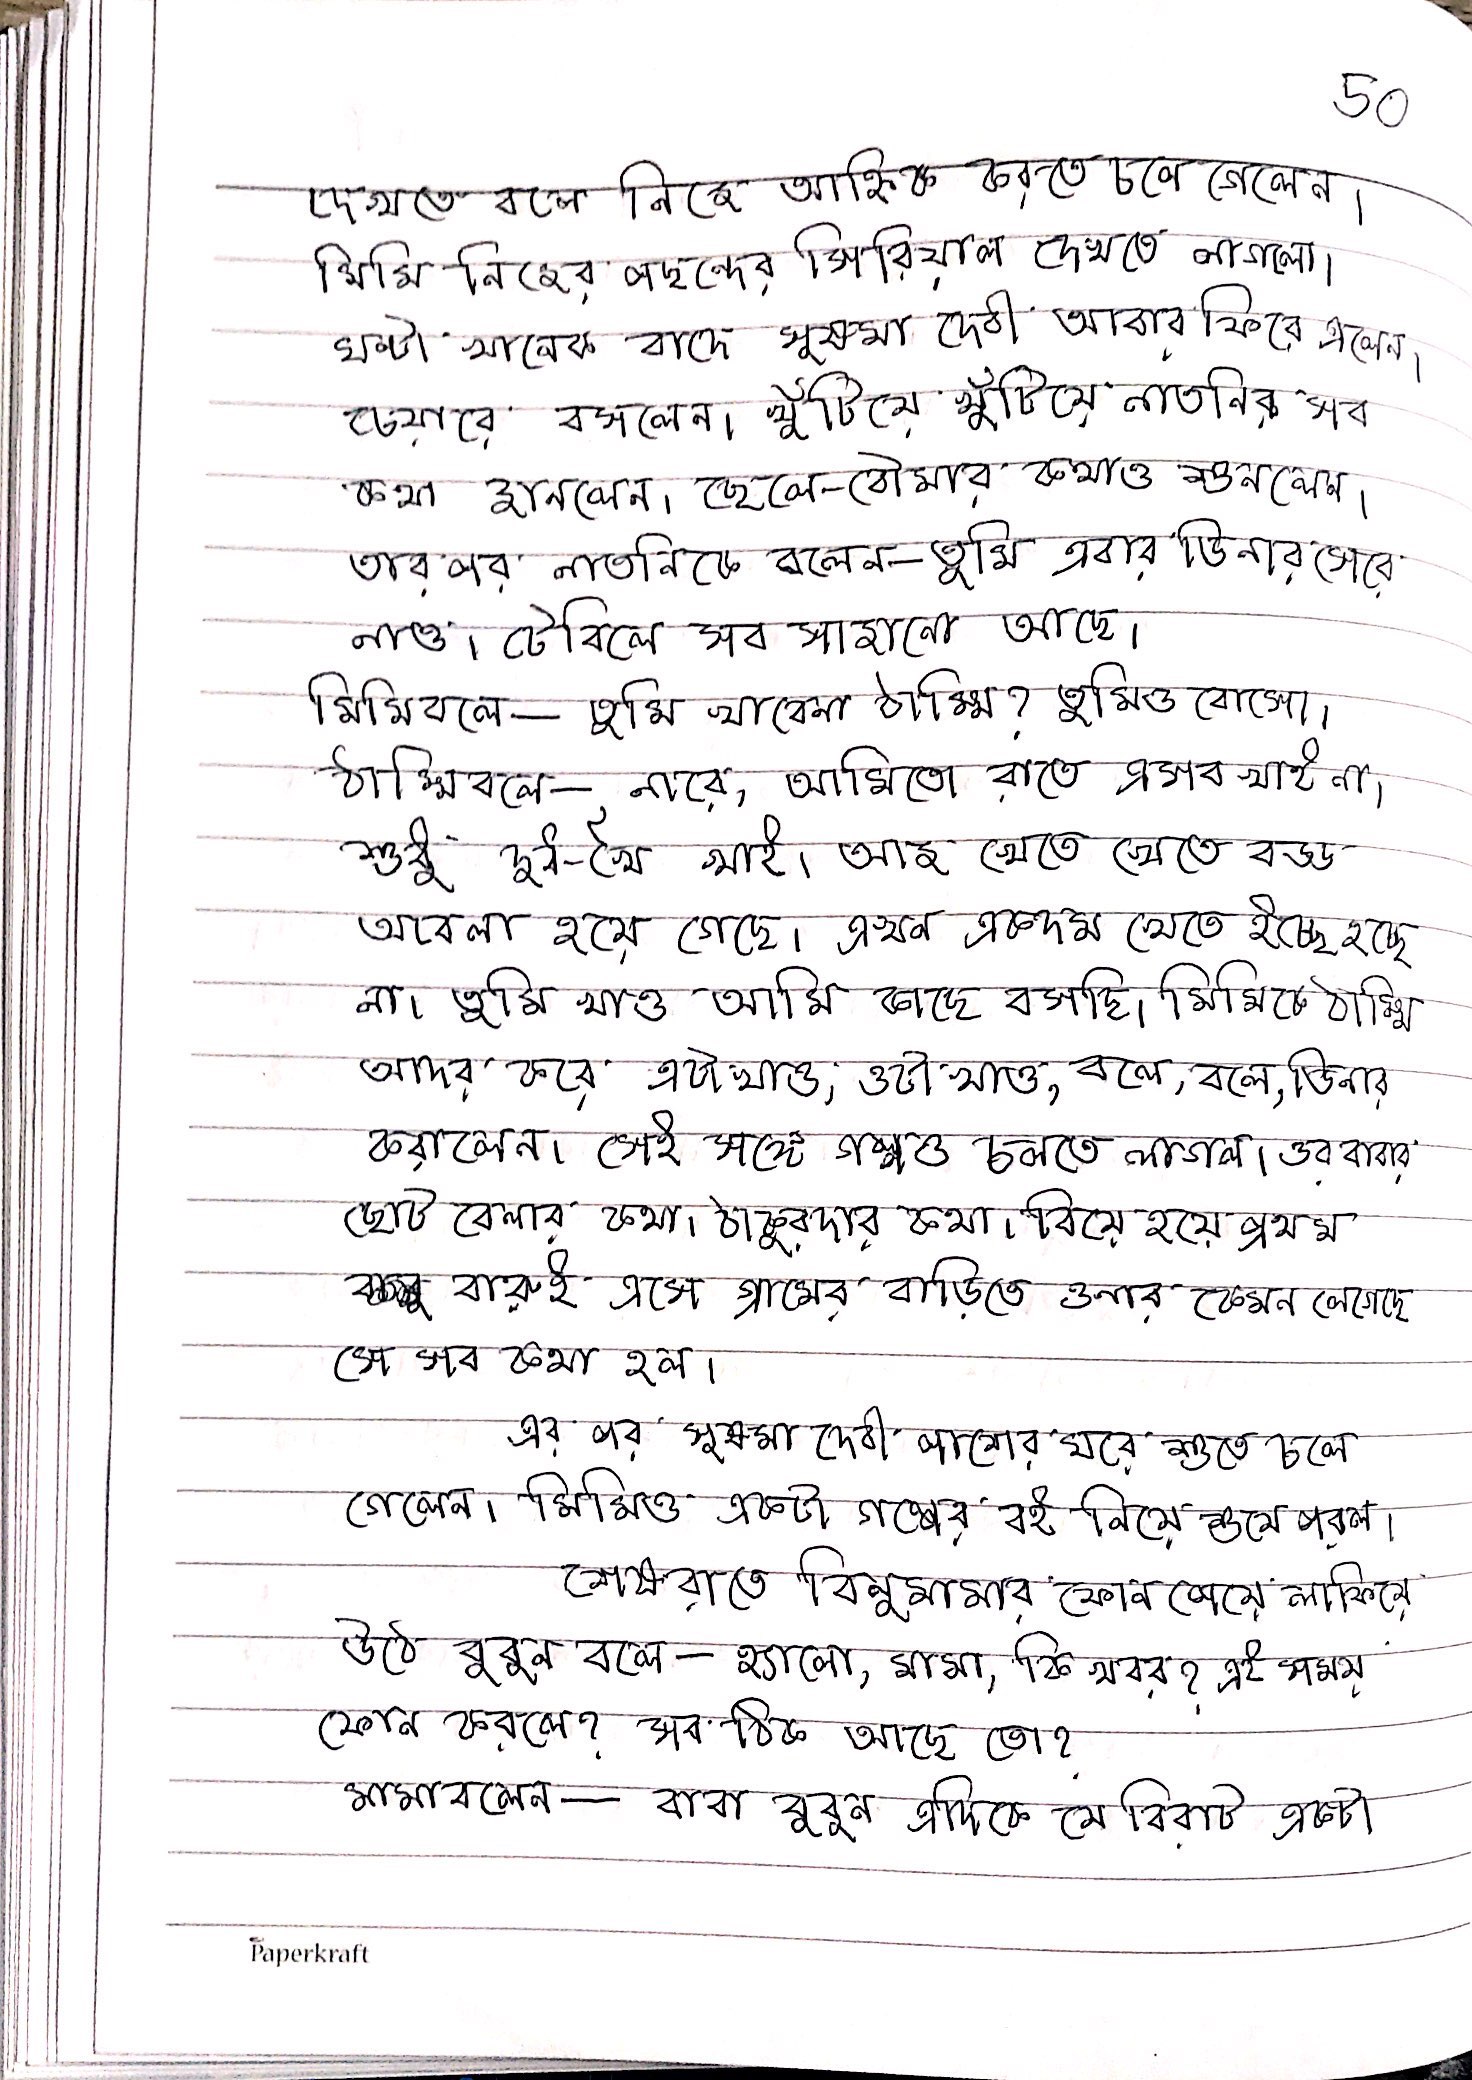 50
দেখতে বলে নিজে আহ্নিক করতে চলে গেলেন।
মিমি নিজের পছন্দের সিরিয়াল দেখতে লাগলো।
ঘন্টা খানেক বাদে সুষমা দেবী আবার ফিরে এলেন।
চেয়ারে বসলেন। খুঁটিয়ে খুঁটিয়ে নাতনির সব
কথা জানলেন। ছেলে-বৌমার কথাও শুনলেন।
তারপর নাতনিকে বলেন—তুমি এবার ডিনার সেরে
নাও। টেবিলে সব সাজানো আছে।
মিমি বলে— তুমি খাবেনা ঠাম্মি? তুমিও বোসো।
ঠাম্মি বলে—, নারে, আমিতো রাতে এসব খাই না।
শুধু দুধ-খৈ খাই। আজ খেতে খেতে বড্ড
অবেলা হয়ে গেছে। এখন একদম খেতে ইচ্ছে হচ্ছে
না। তুমি খাও আমি কাছে বসছি। মিমিকে ঠাম্মি
আদর করে এটা খাও, ওটা খাও, বলে, বলে, ডিনার
করালেন। সেই সঙ্গে গল্পও চলতে লাগল। ওর বাবার
ছোট বেলার কথা। ঠাকুরদার কথা। বিয়ে হয়ে প্রথম
বারুই এসে গ্রামের বাড়িতে ওনার কেমন লেগেছে
সে সব কথা হল।
এর পর সুষমা দেবী পাশের ঘরে শুতে চলে
গেলেন। মিমিও একটা গল্পের বই নিয়ে শুয়ে পরল।
শেষরাতে বিনুমামার ফোন পেয়ে লাফিয়ে
উঠে বুবুন বলে — হ্যালো, মামা, কি খবর? এই সময়
ফোন করলে? সব ঠিক আছে তো?
মামা বলেন— বাবা বুবুন এদিকে যে বিরাট একটা
Paperkraft